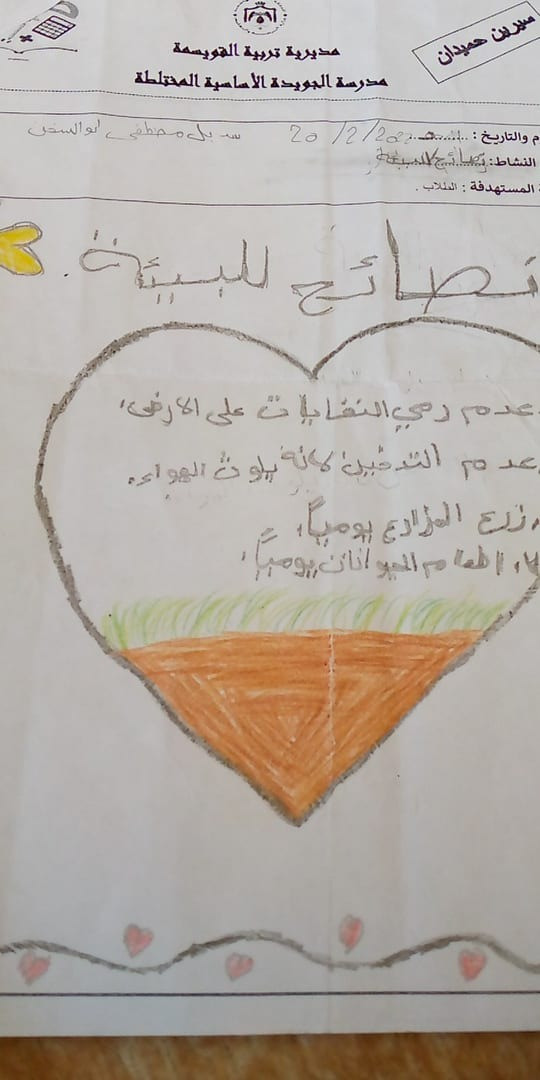 سيرين حميدان
مديرية تربية القويسمة
مدرسة الجويدة الأساسية المختلطة
م والتاريخ : 20 /2/ سدبل مصطفى ابو السمن
النشاط: نصائح للبيئة
المستهدفة : الطلاب .
نصائح للبيئة .
عدم رمي النفايات على الارض.
عدم التدخين لانه يلوث الهواء.
زرع المزارع يومياً.
اطعام الحيوانات يومياً.